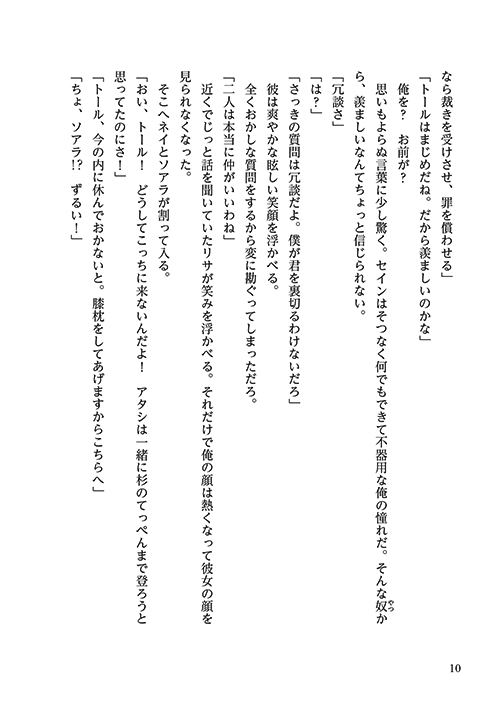 なら裁きを受けさせ、罪を償わせる」
「トールはまじめだね。だから羨ましいのかな」
俺を？　お前が？
思いもよらぬ言葉に少し驚く。セインはそつなく何でもできて不器用な俺の憧れだ。そんな奴か
やつ
ら、羨ましいなんてちょっと信じられない。
「冗談さ」
「は？」
「さっきの質問は冗談だよ。僕が君を裏切るわけないだろ」
彼は爽やかな眩しい笑顔を浮かべる。
全くおかしな質問をするから変に勘ぐってしまっただろ。
「二人は本当に仲がいいわね」
近くでじっと話を聞いていたリサが笑みを浮かべる。それだけで俺の顔は熱くなって彼女の顔を
見られなくなった。
そこへネイとソアラが割って入る。
「おい、トール！　どうしてこっちに来ないんだよ！　アタシは一緒に杉のてっぺんまで登ろうと
思ってたのにさ！」
「トール、今の内に休んでおかないと。膝枕をしてあげますからこちらへ」
「ちょ、ソアラ!?　ずるい！」
10